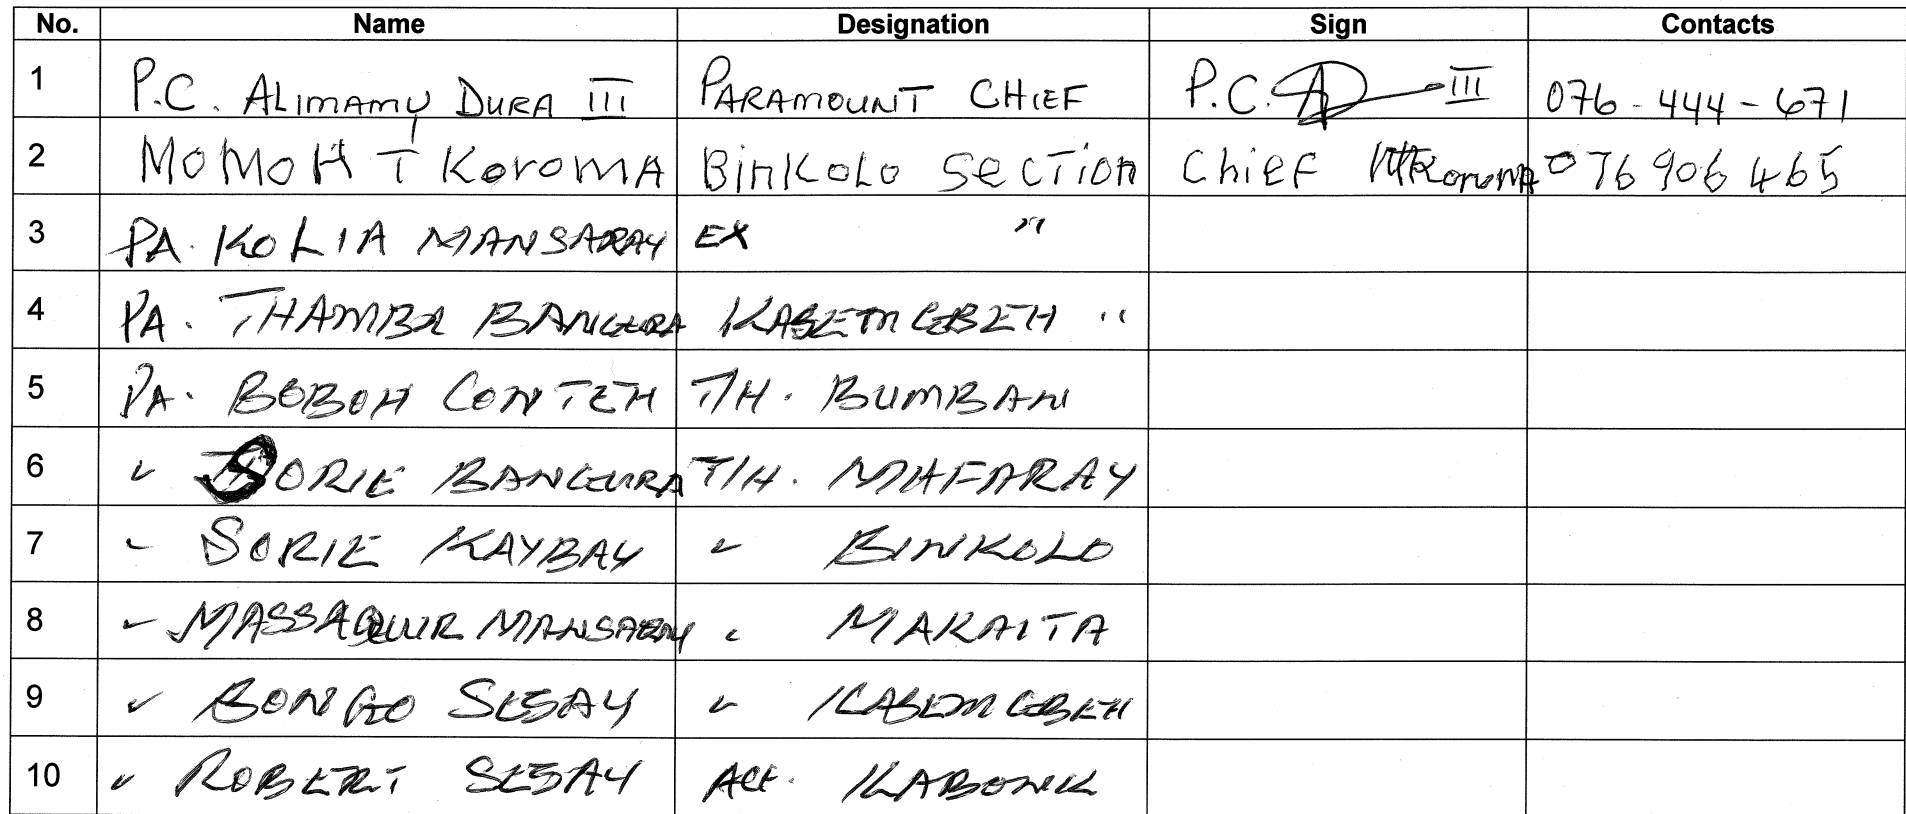 No. Name Designation Sign Contacts
1 P.C. ALIMAMY DURA III PARAMOUNT CHIEF P.C. III 076-444-671
2 MOMOH T KOROMA BINKOLO SECTION CHIEF Koroma 076 906 465
3 PA. KOLIA MANSARAY EX "
4 PA. THAMBA BANGURA KASEMGBEH "
5 PA. BOBOH CONTEH T/H. BUMBAN
6 " SORIE BANGURA T/H. MAFARAY
7 " SORIE KAYBAY " BINKOLO
8 " MANSARAY " MAKAITA
9 " BONGO SESAY " KASEMGBEH
10 " ROBERT SESAY